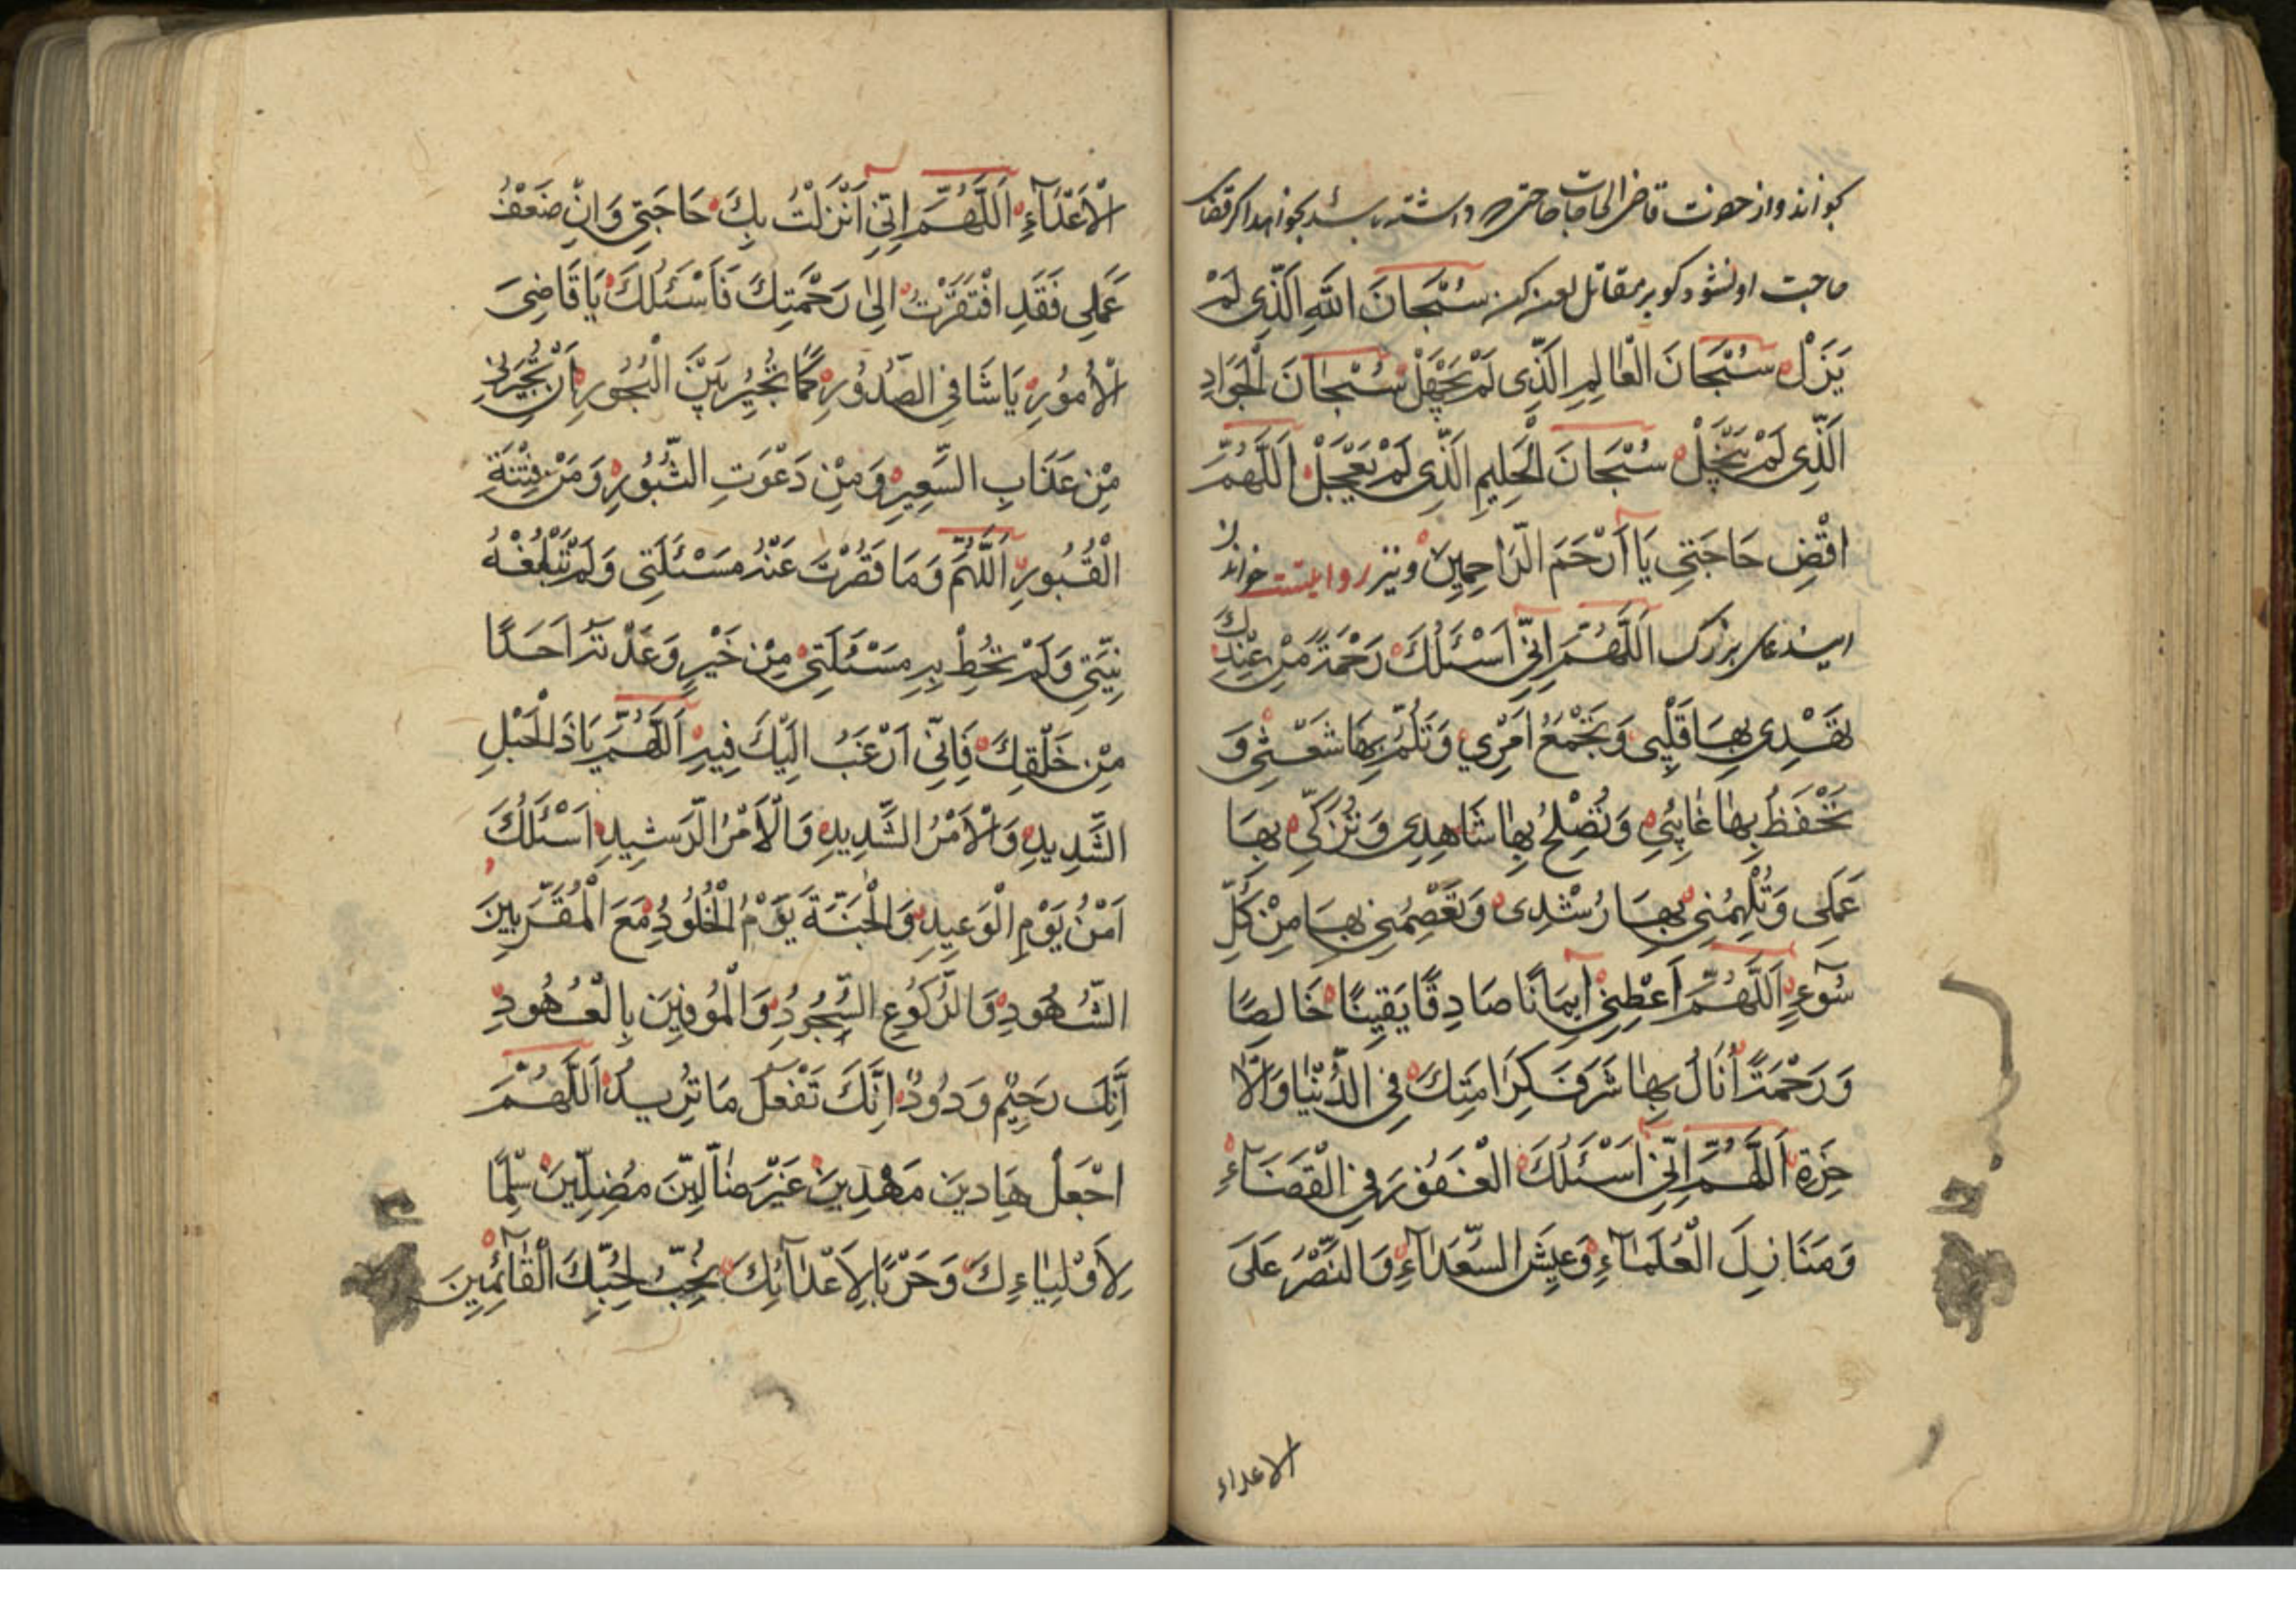 بخواند و از حضرت قاضی الحاجات حاجتی که داشته باشد بخواهد اگر قضا
حاجت او نشود کو بر مقاتل لعن کن سُبْحَانَ اللّٰهِ الَّذِی لَمْ
یَزَلْ سُبْحَانَ الْعَالِمِ الَّذِی لَمْ یَجْهَلْ سُبْحَانَ الْجَوَادِ
الَّذِی لَمْ یَبْخَلْ سُبْحَانَ الْحَلِیمِ الَّذِی لَمْ یَعْجَلْ اَللّٰهُمَّ
اقْضِ حَاجَتِی یَا اَرْحَمَ الرَّاحِمِینَ و نیز روایتست خواندن
این دعای بزرک اَللّٰهُمَّ اِنِّی اَسْئَلُكَ رَحْمَةً مِنْ عِنْدِكَ
تَهْدِی بِهَا قَلْبِی وَتَجْمَعُ اَمْرِی وَتَلُمُّ بِهَا شَعْثِی وَ
تَحْفَظُ بِهَا غَائِبِی وَتُصْلِحُ بِهَا شَاهِدِی وَتُزَكِّی بِهَا
عَمَلِی وَتُلْهِمُنِی بِهَا رُشْدِی وَتَعْصِمُنِی بِهَا مِنْ كُلِّ
سُوٓءٍ اَللّٰهُمَّ اَعْطِنِی اِیمَانًا صَادِقًا یَقِینًا خَالِصًا
وَرَحْمَتًا اَنَالُ بِهَا شَرَفَ كِرَامَتِكَ فِی الدُّنْیَا وَالْاٰ
خِرَةِ اَللّٰهُمَّ اِنِّی اَسْئَلُكَ الْغَفُوْرَ فِی الْقَضَآءِ
وَمَنَازِلَ الْعُلَمَآءِ وَعَیْشَ السُّعَدَآءِ وَالنَّصْرَ عَلَی
الاعداء
الْاَعْدَآءِ اَللّٰهُمَّ اِنِّی اَنْزَلْتُ بِكَ حَاجَتِی وَاِنْ ضَعْفُ
عَمَلِی فَقَدِ افْتَقَرْتُ اِلٰی رَحْمَتِكَ فَاَسْئَلُكَ یَا قَاضِیَ
الْاُمُوْرِ یَا شَافِی الصُّدُوْرِ كَمَا تُجِیْرُ بَیْنَ الْبُحُوْرِ اَنْ تُجِیْرَنِی
مِنْ عَذَابِ السَّعِیرِ وَمِنْ دَعْوَتِ الثُّبُوْرِ وَمَنْ فِتْنَةِ
الْقُبُورِ اَللّٰهُمَّ وَمَا قَصُرْتَ عَنْهُ مَسْئَلَتِی وَلَمْ تَبْلُغْهُ
نِیَّتِی وَلَمْ تُحِطْ بِهِ مَسْئَلَتِی مِنْ خَیْرٍ وَعَدْتَهُ اَحَدًا
مِنْ خَلْقِكَ فَاِنِّی اَرْغَبُ اِلَیْكَ فِیهِ اَللّٰهُمَّ یَا ذَالْحَبْلِ
الشَّدِیدِ وَالْاَمْرُ الشَّدِیدِ وَالْاَمْرُ الرَّشِیدِ اَسْئَلُكَ
اَمْنُ یَوْمِ الْوَعِیدِ وَالْجَنَّةَ یَوْمُ الْخُلُوْدِ مَعَ الْمُقَرَّبِینَ
الشُّهُودِ وَالرُّكُوْعِ السُّجُوْدُ وَالْمُوفِینَ بِالْعُهُودِ
اَنِّكَ رَحِیْمٌ وَدُوْدٌ اِنَّكَ تَفْعَلُ مَا تُرِیدُ اَللّٰهُمَّ
اجْعَلْ هَادِینَ مَهْدِیینَ غَیْرَ ضَالِّینَ مُضِلِّینَ سِلْمًا
لِاَوْلِیَاءِكَ وَحَرْبًا لِاَعْدَآئِكَ نُحِبُّ لِحُبِّكَ الْقَائِمِینَ